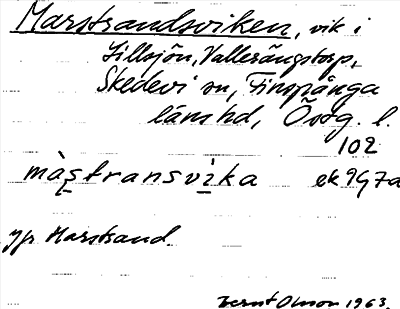 Marstrandsviken, vik i
Tillsjön, Vallerängstorp,
Skedevi sn, Finspånga
läns hd, Östg. l.
102
màs̱transvi̱ka ek 9G7a
Jfr Marstrand
Bernt Olsson 1963.